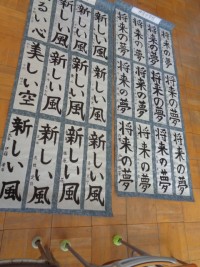 将来の夢
将来の夢
将来の夢
将来の夢
将来の夢
将来の夢
将来の夢
将来の夢
将来の夢
将来の夢
将来の夢
将来の夢
新しい風
新しい風
新しい風
るい心
新しい風
新しい風
新しい風
美しい空
新しい風
新しい風
新しい風
新しい風